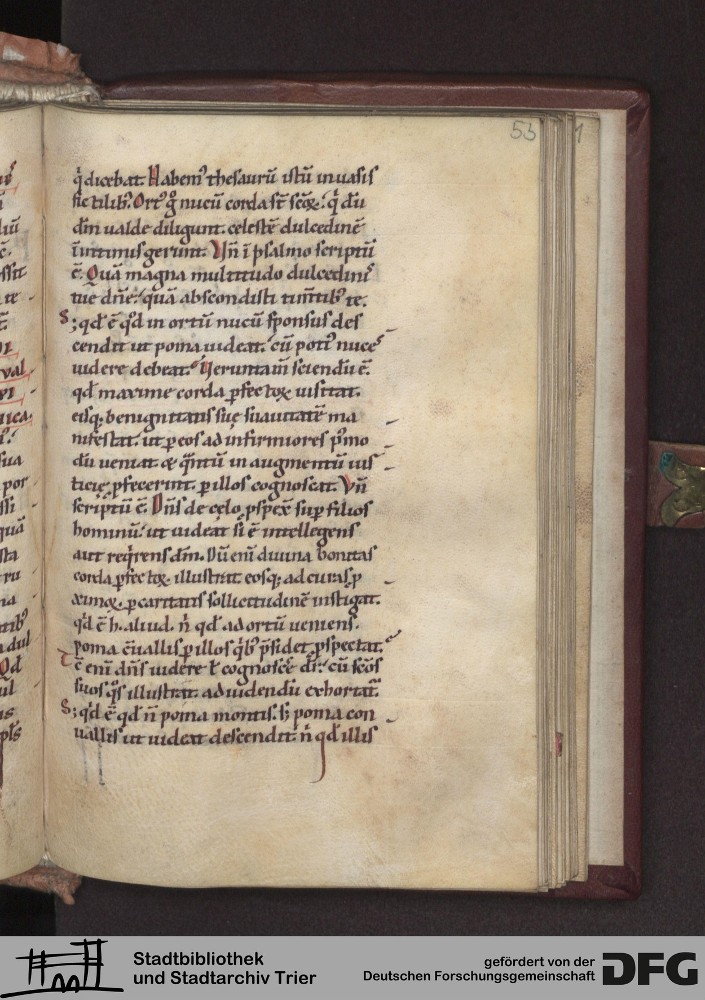 55
1
q̇ dicebat. Habem᷒ thesaurū istū in uasis
fictilib᷒. Ort᷒ ḡ nucū corda st̄ scōꝝ. q̇ dn̄
dm̄ ualde diligunt. celestē dulcedinē
ī intimis gerunt. Vn̄ ī psalmo scriptū
ē. Quā magna multitudo dulcedinis
tue dn̄e. quā abscondisti tim̄tib᷒ te.
S; qd̄ ē qd̄ in ortū nucū sponsus des
cendit ut poma uideat. cū poti᷒ nuces
uidere debeat. Ueruntam̄ sciendū ē.
qd̄ maxime corda ꝑfectoꝝ uisitat.
eisq; benignitatis suę suauitatē ma
nifestat. ut ꝑ eos ad infirmiores p̄mo
dū ueniat & q̄ntū in augmentū ius
ticię ꝓfecerint. ꝑ illos cognoscat. Vn̄
scriptū ē. Dn̄s de cęlo ꝓspex̄ suꝑ filios
hominū. ut uideat si ē intellegens
aut req̇rens dm̄. Dū eni diuina bonitas
corda ꝑfectoꝝ illustrat. eosq; ad curas ꝓ
ximoꝝ ꝑ caritatis sollicitudinē instigat.
qd̄ ē h. aliud. n̄ qd̄ ad ortū ueniens.
poma c̄uallis ꝑ illos q̇b᷒ p̄sidet ꝑspectat.
T̄c enī dn̄s uidere ł cognoscere dr̄. cū scōs
suos q̇s illustrat. ad uidendū exhortat᷑.
S; qd̄ ē qd̄ n̄ poma montis. s; poma con
uallis ut uideat descendit. n̄ qd̄ illis
Stadtbibliothek
und Stadtarchiv Trier
gefördert von der
Deutschen Forschungsgemeinschaft
DFG